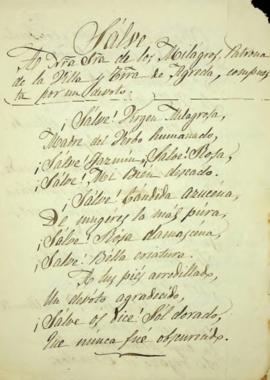 Salve
A Ntra Sra de los Milagros, Patrona
de la Villa y Tierra de Agreda, compues
ta por un devoto.
¡Salve! Virgen Milagrosa,
Madre del Verbo humanado,
¡Salve! Jazmin, ¡Salve! Rosa,
¡Salve! Mi bien deseado.
¡Salve! Candida azucena,
De mugeres la mas pura,
¡Salve! Rosa damascena,
¡Salve! Bella criatura.
A tus piés arrodillado,
Un devoto agradecido,
¡Salve os dice Sol dorado,
Que nunca fué obscurecido.